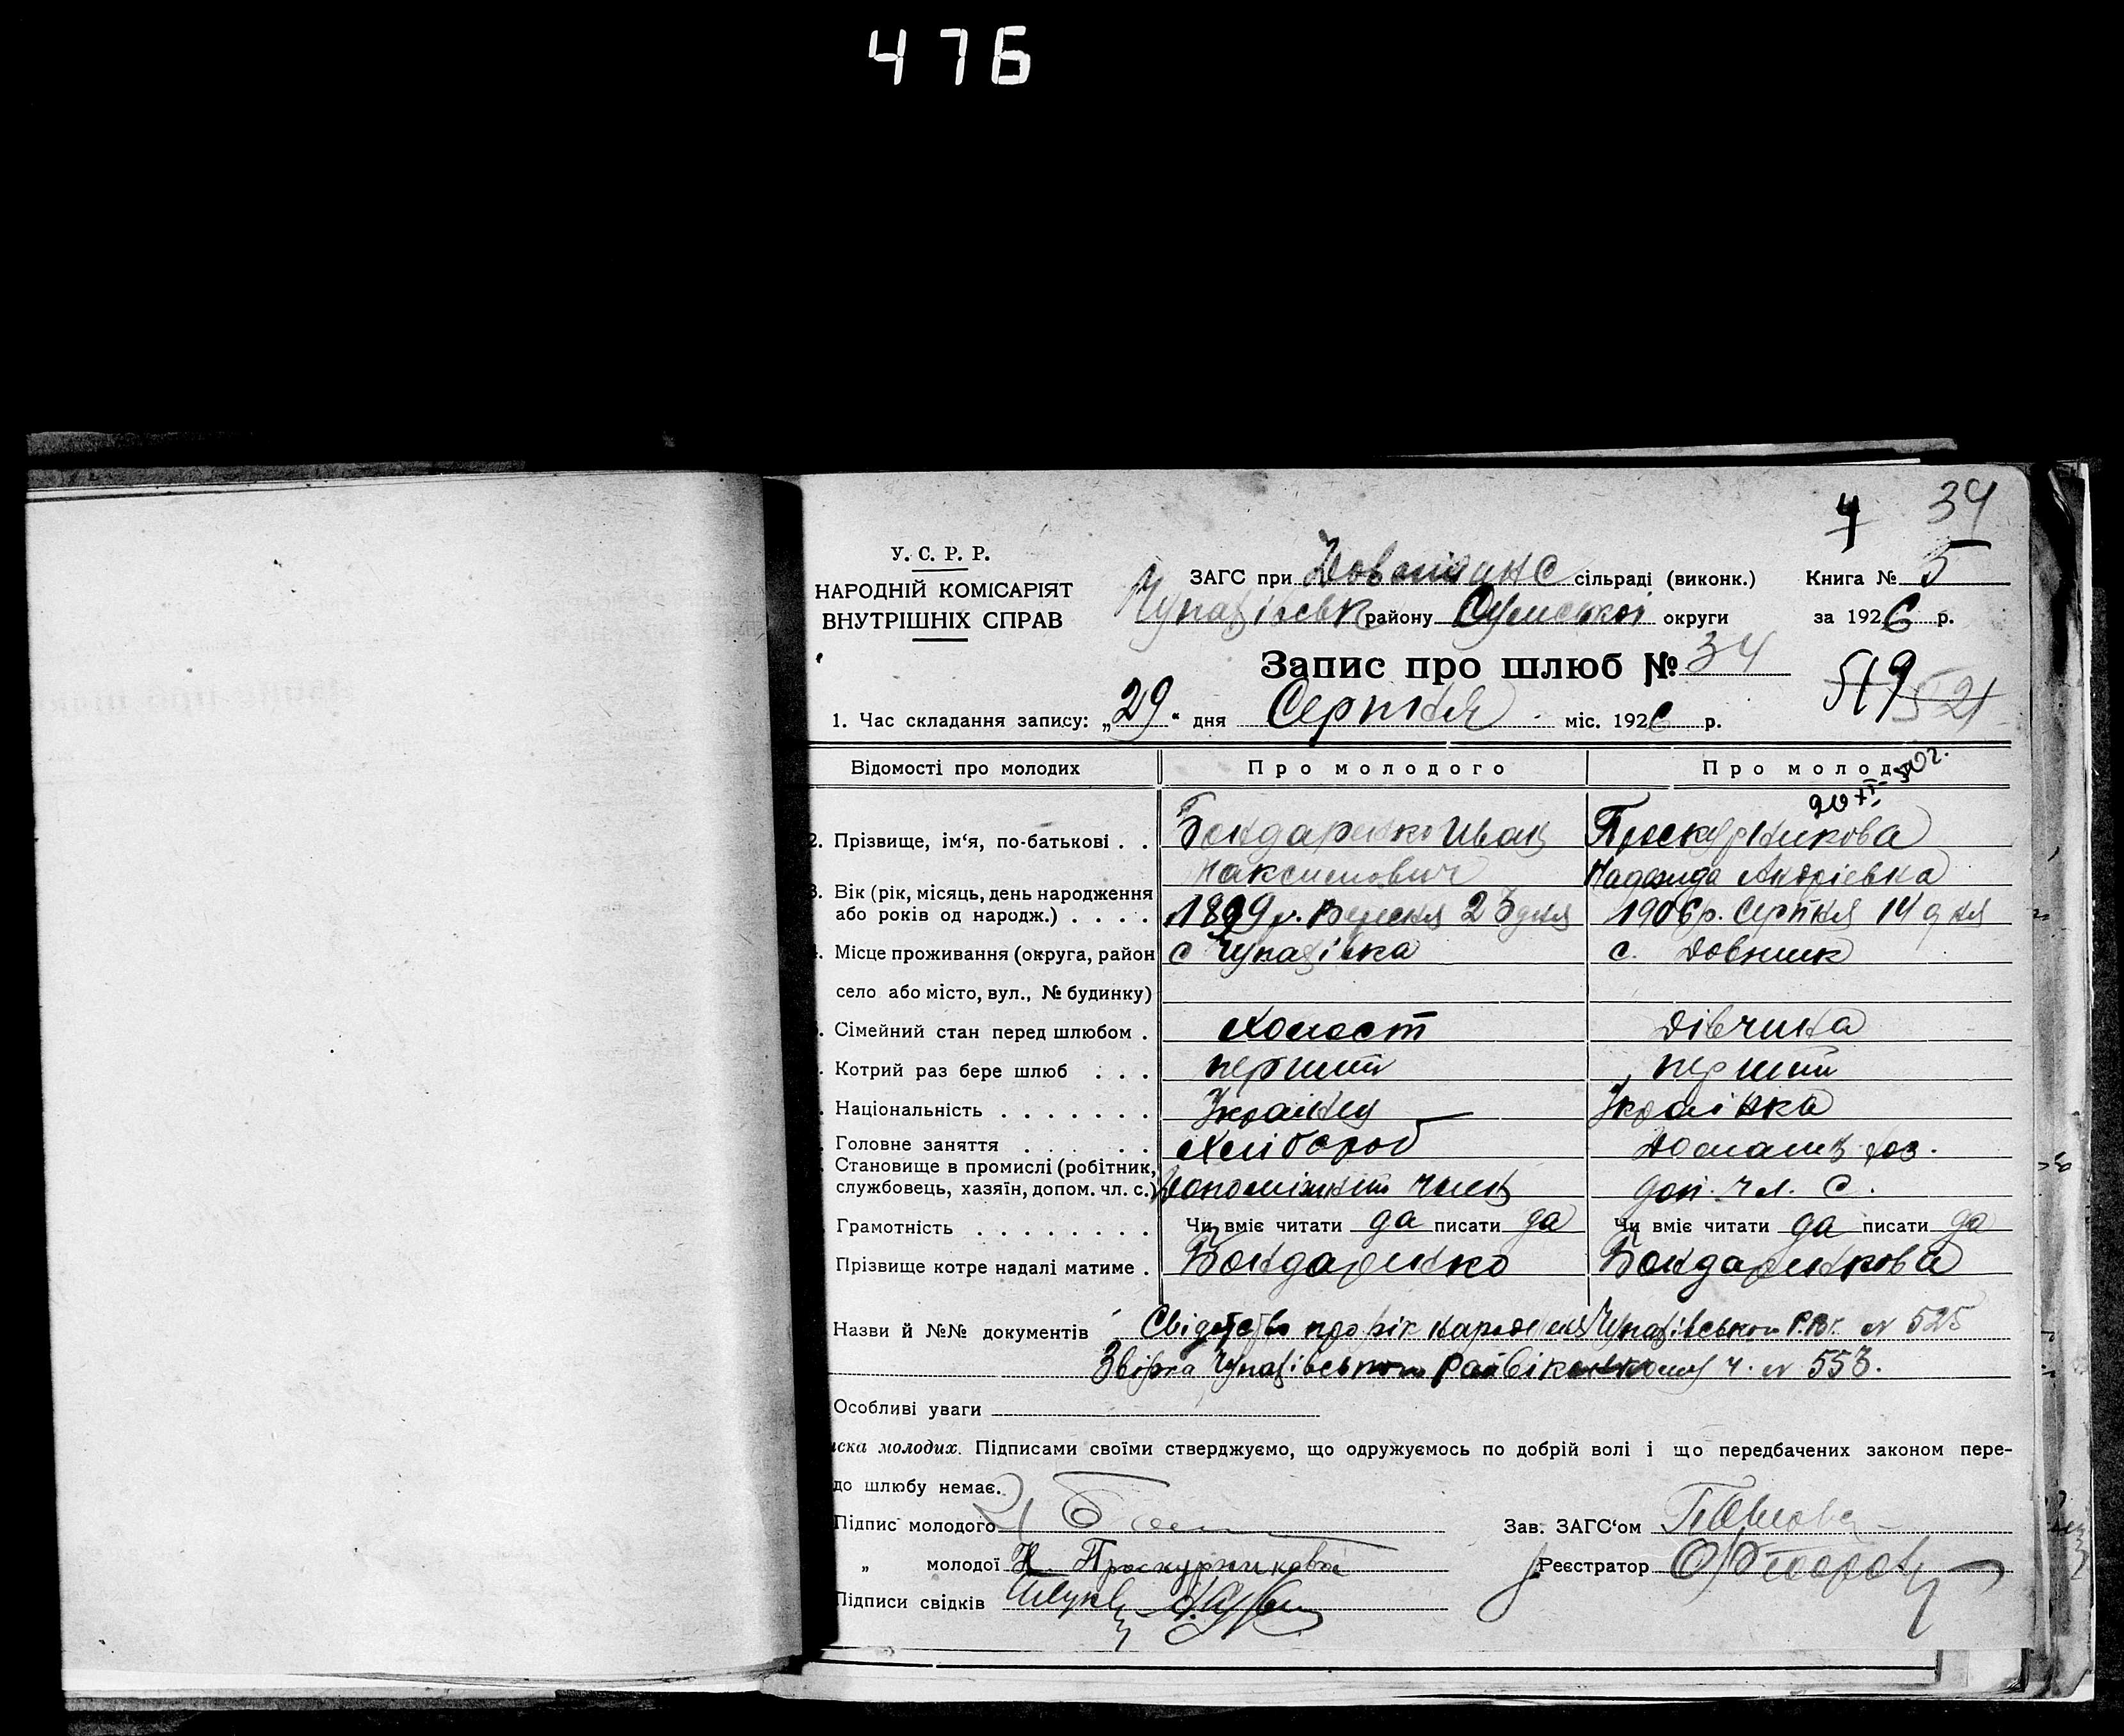 476
4 34
У. С. Р. Р.
НАРОДНІЙ КОМІСАРІЯТ
ВНУТРІШНІХ СПРАВ
ЗАГС при сільраді (виконк.) Книга № 5
Чупахівськ району Сумської округи за 1926 р.
Запис про шлюб № 34
519 521
1. Час складання запису: „29" дня Серпня міс. 1926 р.
Відомості про молодих Про молодого Про молод
20 XI
2. Прізвище, ім'я, по-батькові . . Бондаренко Иван Проскурникова
Максимович Надежда Андріевна
3. Вік (рік, місяць, день народження
або років од народж.) . . . . 1899 р. Вересня 23 дня 1906 р. Серпня 14 дня
4. Місце проживання (округа, район с Чупахівка с. Довжик
село або місто, вул., № будинку)
Сімейний стан перед шлюбом . Холост Дівчина
Котрий раз бере шлюб . . . перший перший
Національність . . . . . . . Українец Українка
Головне заняття . . . . . . Хлібороб Домашнє хоз.
Становище в промислі (робітник,
службовець, хазяїн, допом. чл. с.) Допоміжний член доп. чл. с.
Грамотність . . . . . . . . Чи вміє читати да писати да Чи вміє читати да писати да
Прізвище котре надалі матиме . Бондаренко Бондаренкова
Назви й №№ документів Свідотство про вік народження Чупахівського Р.В.К. № 525
Чупахівського Райвіконкому ч. № 553.
Особливі уваги
иска молодих. Підписами своїми стверджуємо, що одружуємось по добрій волі і що передбачених законом пере-
до шлюбу немає.
Підпис молодого Зав. ЗАГС'ом
„ молодої Н. Проскурникова Реєстратор
Підписи свідків